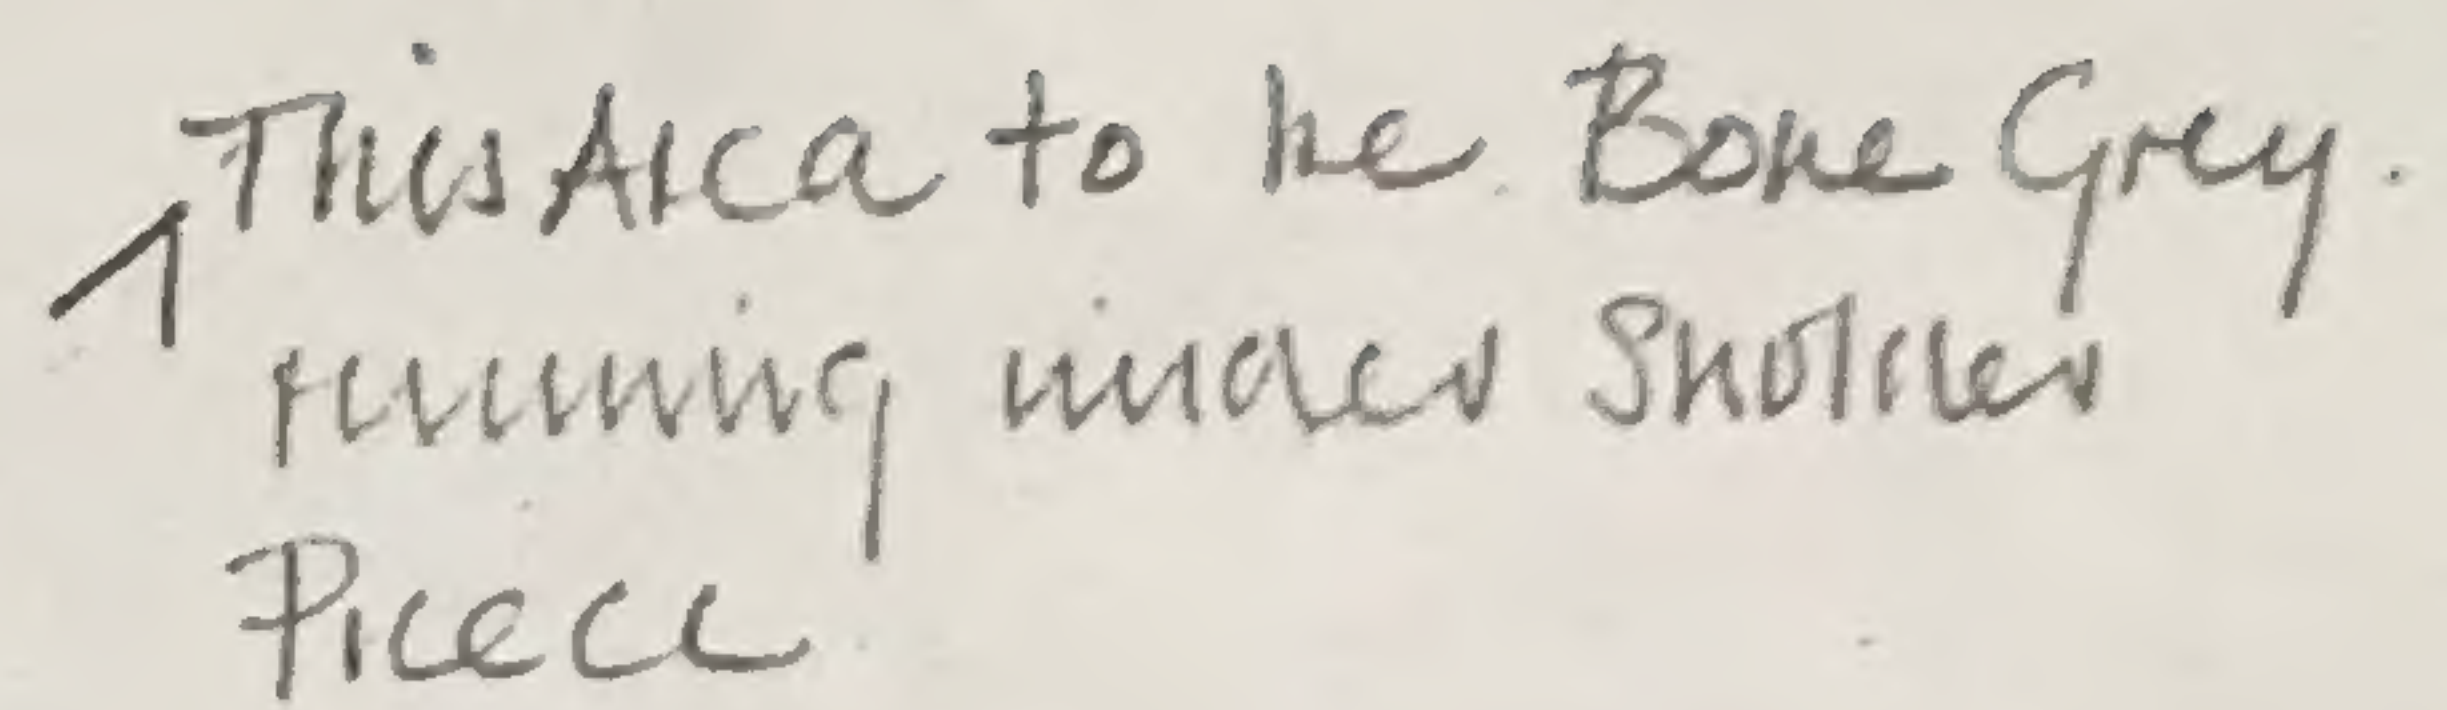 This Area to be Bone Grey.
running under Sholder
Pieece